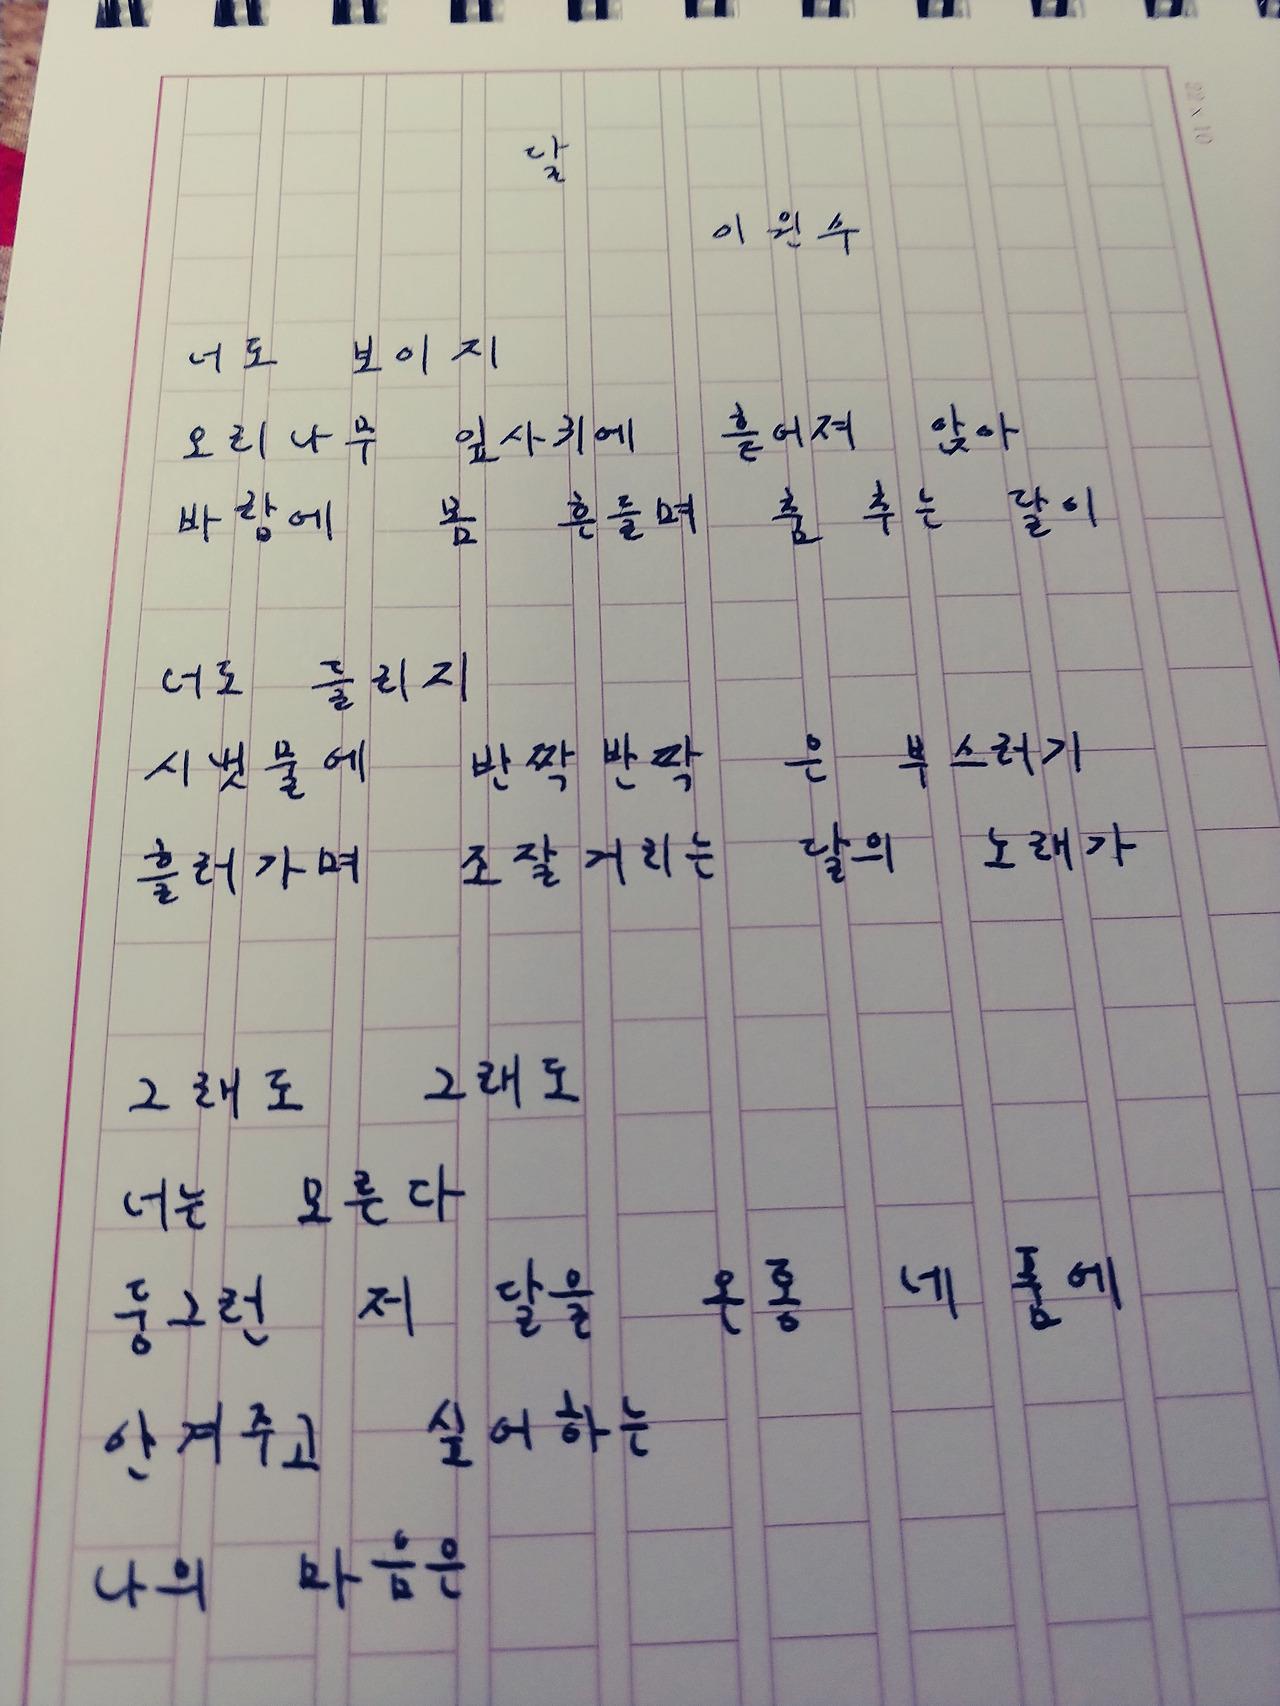 22 × 10
달
이원수
너도 보이지
오리나무 잎사귀에 흩어져 앉아
바람에 몸 흔들며 춤 추는 달이
너도 들리지
시냇물에 반짝반짝 은 부스러기
흘러가며 조잘거리는 달의 노래가
그래도 그래도
너는 모른다
둥그런 저 달을 온통 네 품에
안겨주고 싶어하는
나의 마음은